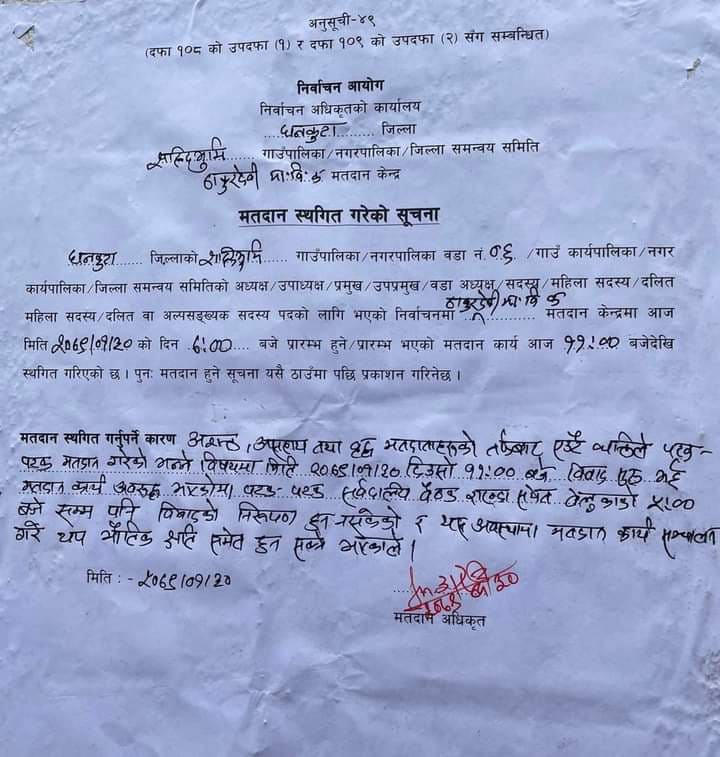 अनुसूची-४९
(दफा १०८ को उपदफा (१) र दफा १०९ को उपदफा (२) संग सम्बन्धित)
निर्वाचन आयोग
निर्वाचन अधिकृतको कार्यालय
धनकुटा जिल्ला
सहिदभुमि गाउंपालिका/नगरपालिका/जिल्ला समन्वय समिति
ठाकुरदेवी मा.वि.क मतदान केन्द्र
मतदान स्थगित गरेको सूचना
धनकुटा जिल्लाको सहिदभुमि गाउँपालिका/नगरपालिका वडा नं. ०६ /गाउं कार्यपालिका/नगर
कार्यपालिका/जिल्ला समन्वय समितिको अध्यक्ष/उपाध्यक्ष/प्रमुख/उपप्रमुख/वडा अध्यक्ष/सदस्य/महिला सदस्य/दलित
महिला सदस्य/दलित वा अल्पसङ्ख्यक सदस्य पदको लागि भएको निर्वाचनमा ठाकुरदेवी मा.वि.क मतदान केन्द्रमा आज
मिति २०७९/०१/३० को दिन ७:०० बजे प्रारम्भ हुने/प्रारम्भ भएको मतदान कार्य आज ११:०० बजेदेखि
स्थगित गरिएको छ। पुनः मतदान हुने सूचना यसै ठाउँमा पछि प्रकाशन गरिनेछ।
मतदान स्थगित गर्नुपर्ने कारण अशक्त, असहाय तथा वृद्ध मतदाताहरुको तर्फबाट एउटै व्यक्तिले पटक-
पटक मतदान गरेको भन्ने विषयमा मिति २०७९/०१/३० दिउसो ११:०० बजे विवाद सुरु भई
मतदान कार्य अवरुद्ध भएकोमा पटक पटक सर्वदलिय बैठक राख्दा समेत बेलुकाको ५:००
बजे सम्म पनि विवादको निरूपण हुन नसकेको र यस अवस्थामा मतदान कार्य सञ्चालन
गरे थप भौतिक क्षति समेत हुन सक्ने भएकोले।
मिति :- २०७९/०१/३०
मतदान अधिकृत